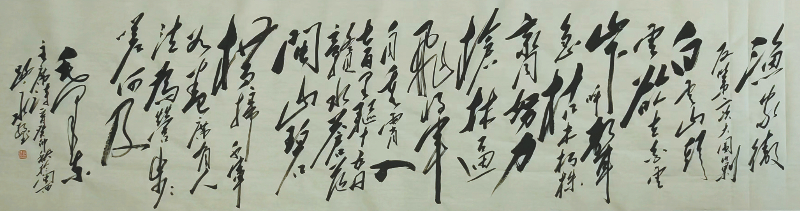 渔家傲
反第二次大围剿
白云山头
云欲立白云
山下呼声
急枯木朽株
齐努力
枪林逼
飞将军
自重霄入
七百里驱十五日
赣水苍茫
闽山碧
横扫千军
如卷席有人
泣为营步步
嗟何及
毛泽东
主席诗